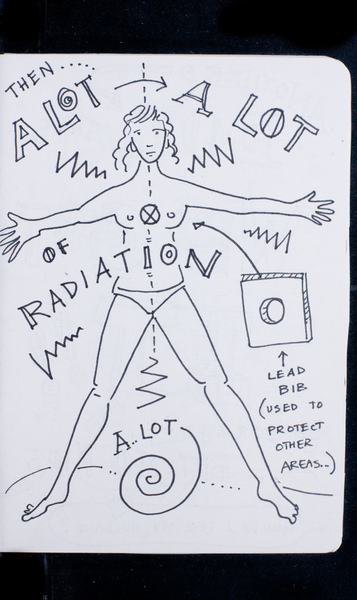 THEN .....
A LOT
A LOT
OF
RADIATION
LEAD
BIB
(USED TO
PROTECT
OTHER
AREAS...)
A..LOT